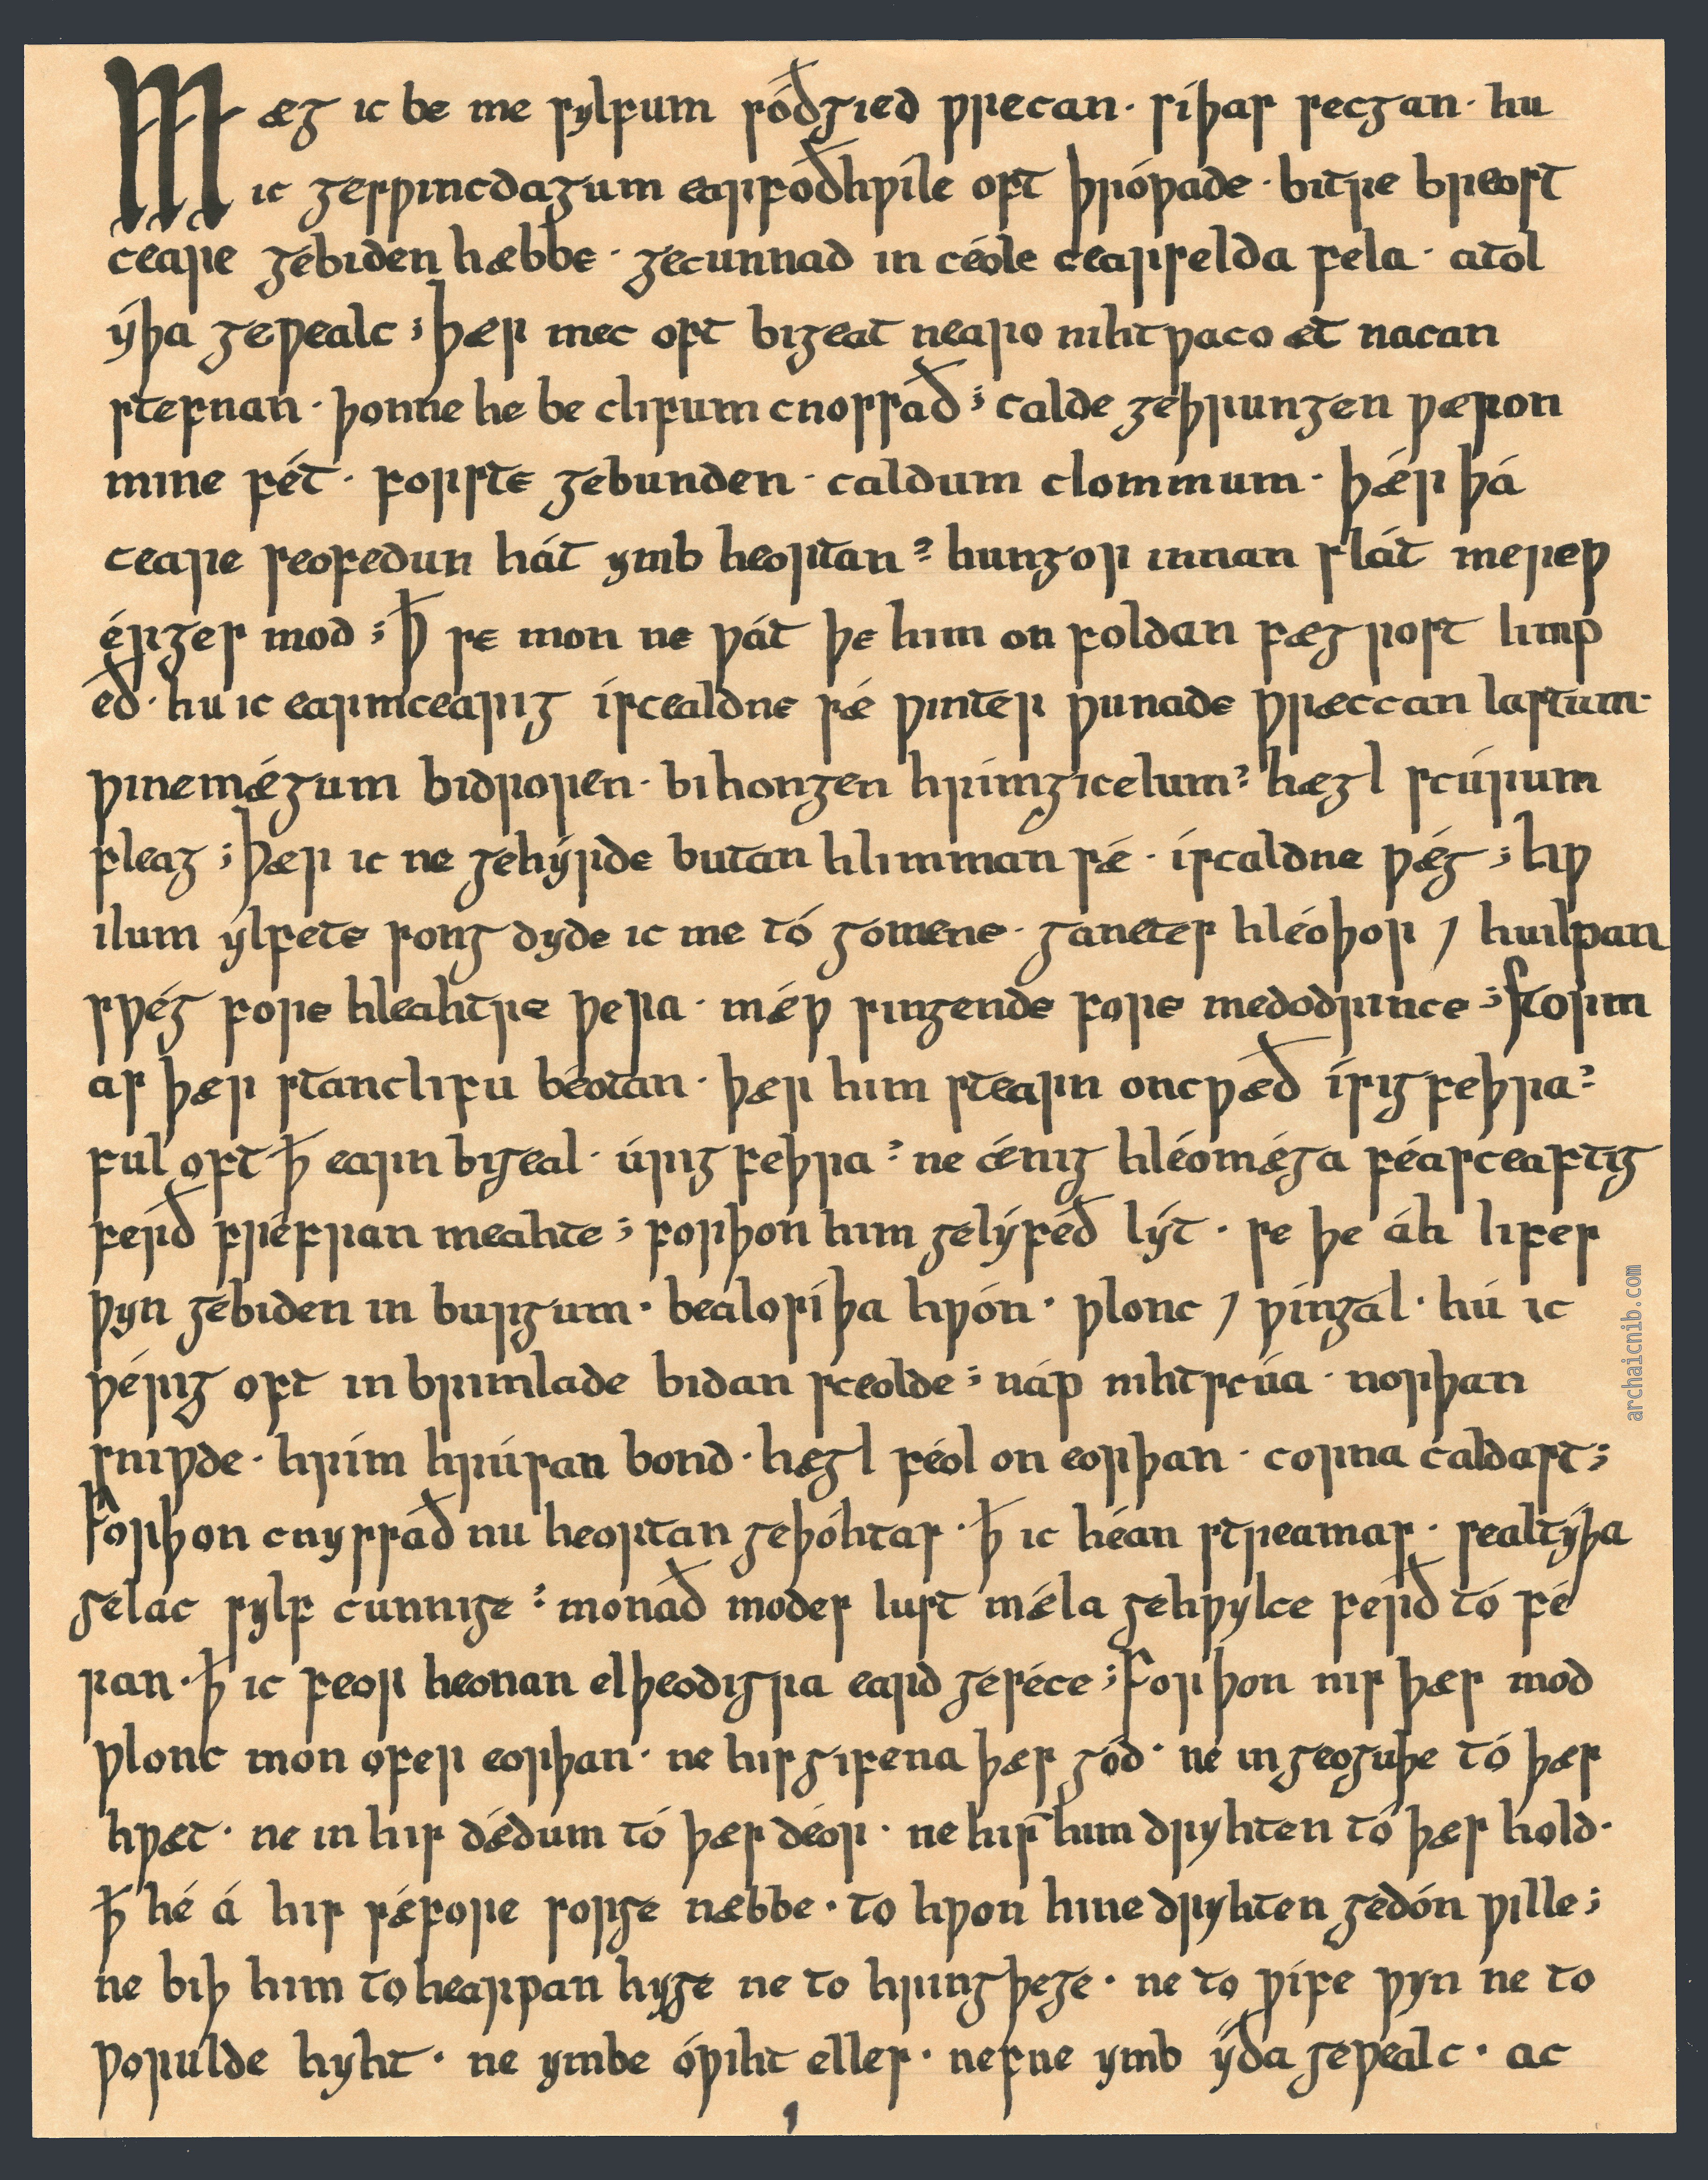 Mæg ic be me sylfum sóðgied ƿrecan · síþas secgan · hu
ic gesƿincdagum earfoðhƿíle oft þróƿade · bitre breost
ceare gebiden hæbbe · gecunnad in céole cearselda fela · atol
ýþa geƿealc ; þær mec oft bigeat nearo nihtƿaco æt nacan
stefnan · þonne he be clifum cnossað ; calde geþrungen ƿæron
mine fét · forste gebunden · caldum clommum · þǽr þá
ceare seofedun hát ymb heortan : hungor innan slát mereƿ
érges mod ; ꝥ se mon ne ƿát þe him on foldan fægrost limp
eð · hu ic earmcearig íscealdne sǽ ƿinter ƿunade ƿræccan lastum ·
ƿinemǽgum bidroren · bihongen hrímgicelum : hægl scúrum
fleag ; þær ic ne gehýrde butan hlimman sǽ · íscaldne ƿǽg ; hƿ
ilum ylfete song dyde ic me tó gomene · ganetes hléoþor ⁊ huilpan
sƿég fore hleahtre ƿera · mǽƿ singende fore medodrince ; storm
as þær stanclifu béotan · þær him stearn oncƿæð ísigfeþra :
ful oft ꝥ earn bigeal · úrigfeþra : ne ǽnig hléomǽga féasceaftig
ferð fréfran meahte ; forþon him gelýfeð lýt · se þe áh lifes
ƿyn gebiden in burgum · bealosíþa hƿón · ƿlonc ⁊ ƿíngál · hú ic
ƿérig oft in brimlade bidan sceolde : náp nihtscúa · norþan
sniƿde · hrím hrúsan bond · hægl féol on eorþan · corna caldast ;
Forþon cnyssað nu heortan geþóhtas · ꝥ ic héan streamas · sealtýþa
gelác sylf cunnige : monað modes lust mǽla gehƿylce ferð tó fé
ran · ꝥ ic feor heonan elþeodigra eard geséce ; Forþon nis þæs mod
ƿlonc mon ofer eorþan · ne his gifena þæs gód · ne in geoguþe tó þæs
hƿæt · ne in his dǽdum tó þæs déor · ne his him dryhten tó þæs hold ·
ꝥ hé á his sǽfore sorge næbbe · to hƿon hine dryhten gedón ƿille ;
ne biþ him to hearpan hyge ne to hringþege · ne to ƿífe ƿyn ne to
ƿorulde hyht · ne ymbe óƿiht elles · nefne ymb ýða geƿealc · ac
archaicnib.com